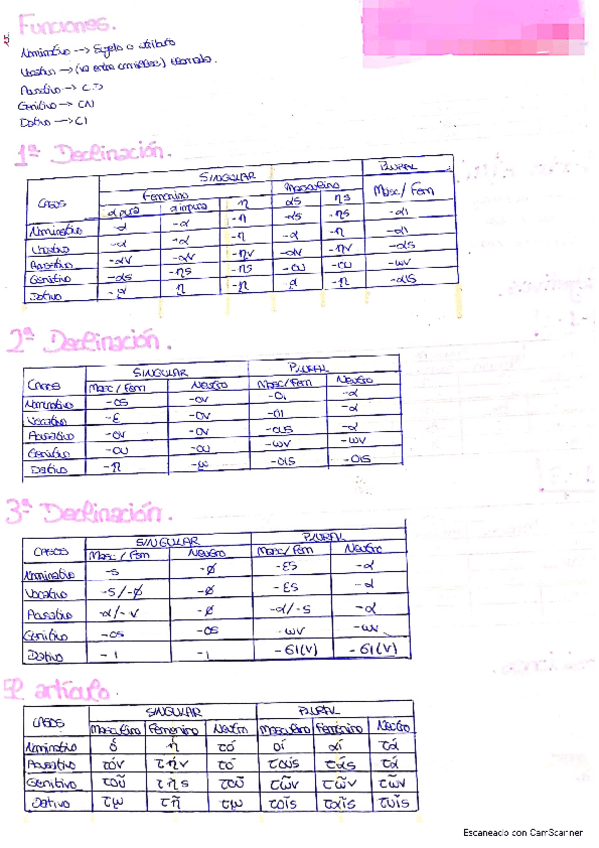 Funciones.
Nominativo --> Sujeto o atributo
Vocativo --> (va entre comas) llamada.
Acusativo --> C.D
Genitivo --> CN
Dativo --> CI
1ª Declinación.
SINGULAR PLURAL
CASOS Femenino Masculino Masc/Fem
α pura α impura η ας ης
Nominativo -α -α -η -ας -ης -αι
Vocativo -α -α -η -α -η -αι
Acusativo -αν -αν -ην -αν -ην -ας
Genitivo -ας -ης -ης -ου -ου -ων
Dativo -ᾳ ῃ -η ᾳ -η -αις
2ª Declinación.
SINGULAR PLURAL
CASOS Masc/Fem Neutro Masc/Fem Neutro
Nominativo -ος -ον -οι -α
Vocativo -ε -ον -οι -α
Acusativo -ον -ον -ους -α
Genitivo -ου -ου -ων -ων
Dativo -η -ω -οις -οις
3ª Declinación.
SINGULAR PLURAL
CASOS Masc/Fem Neutro Masc/Fem Neutro
Nominativo -ς -ø -ες -α
Vocativo -ς/-ø -ø -ες -α
Acusativo -α/-ν -ø -α/-ς -α
Genitivo -ος -ος -ων -ων
Dativo -ι -ι -σι(ν) -σι(ν)
El artículo.
SINGULAR PLURAL
CASOS Masculino Femenino Neutro Masculino Femenino Neutro
Nominativo ὁ ἡ τό οἱ αἱ τά
Acusativo τόν τήν τό τούς τάς τά
Genitivo τοῦ τῆς τοῦ τῶν τῶν τῶν
Dativo τῳ τῇ τῳ τοῖς ταῖς τοῖς
Escaneado con CamScanner